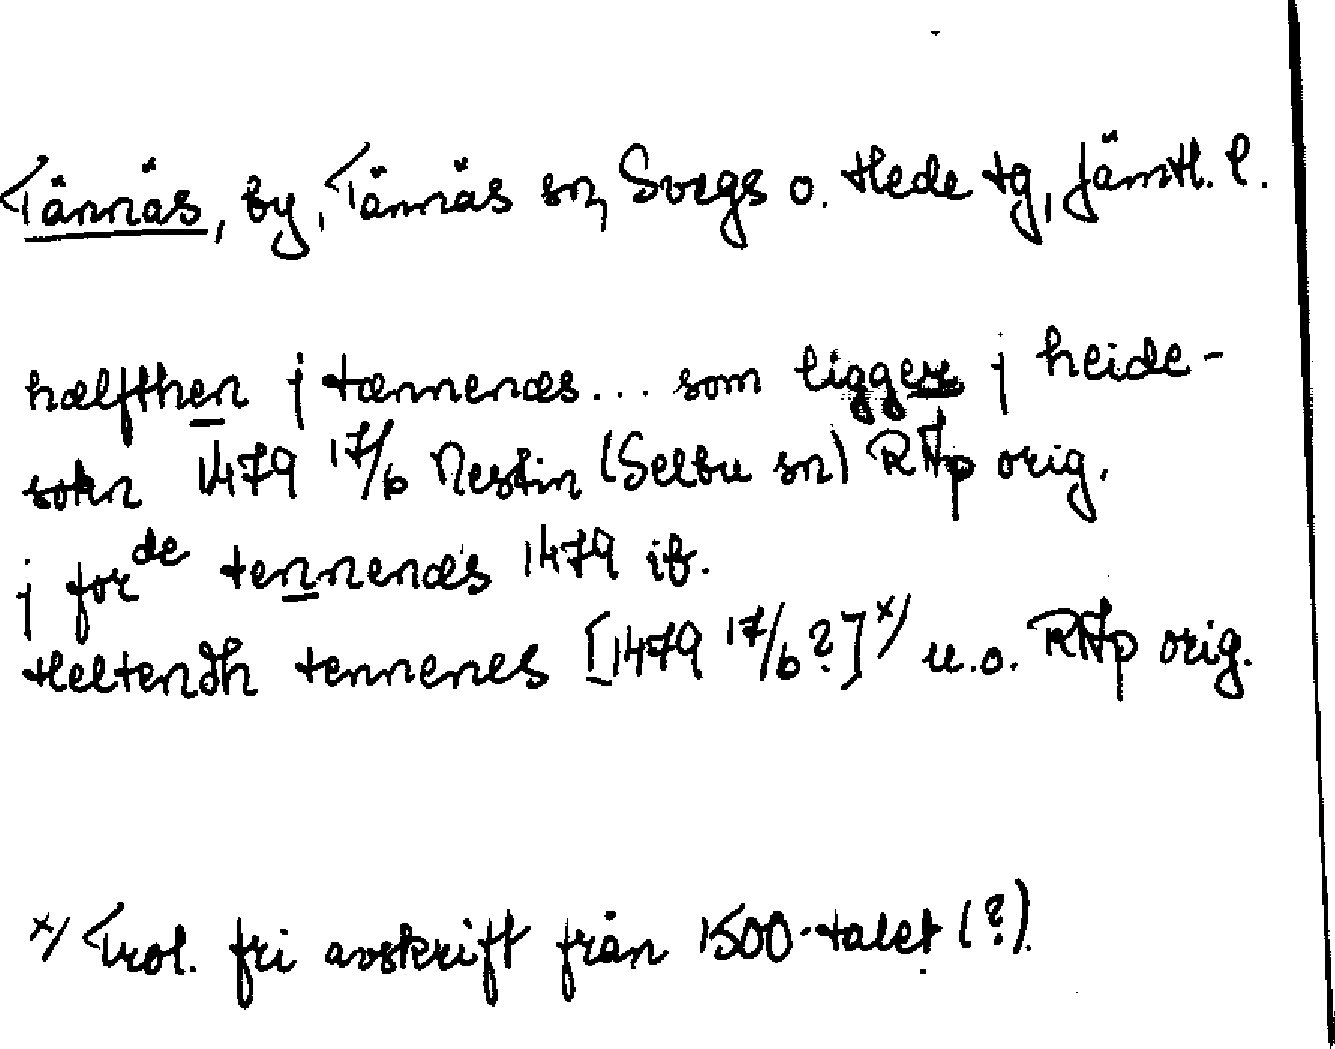 Tännäs, by, Tännäs sn, Svegs o. Hede tg, Jämtl. l.
hælfthen j tænnenæs... som ligger j heide-
sokn 1479 17/6 Nesfin (Selbu sn) RAp orig.
j for de tennenæs 1479 ib.
Heltendh tennenes [1479 17/6?] x) u.o. RAp orig.
x) Trol. fri avskrift från 1500-talet (?).